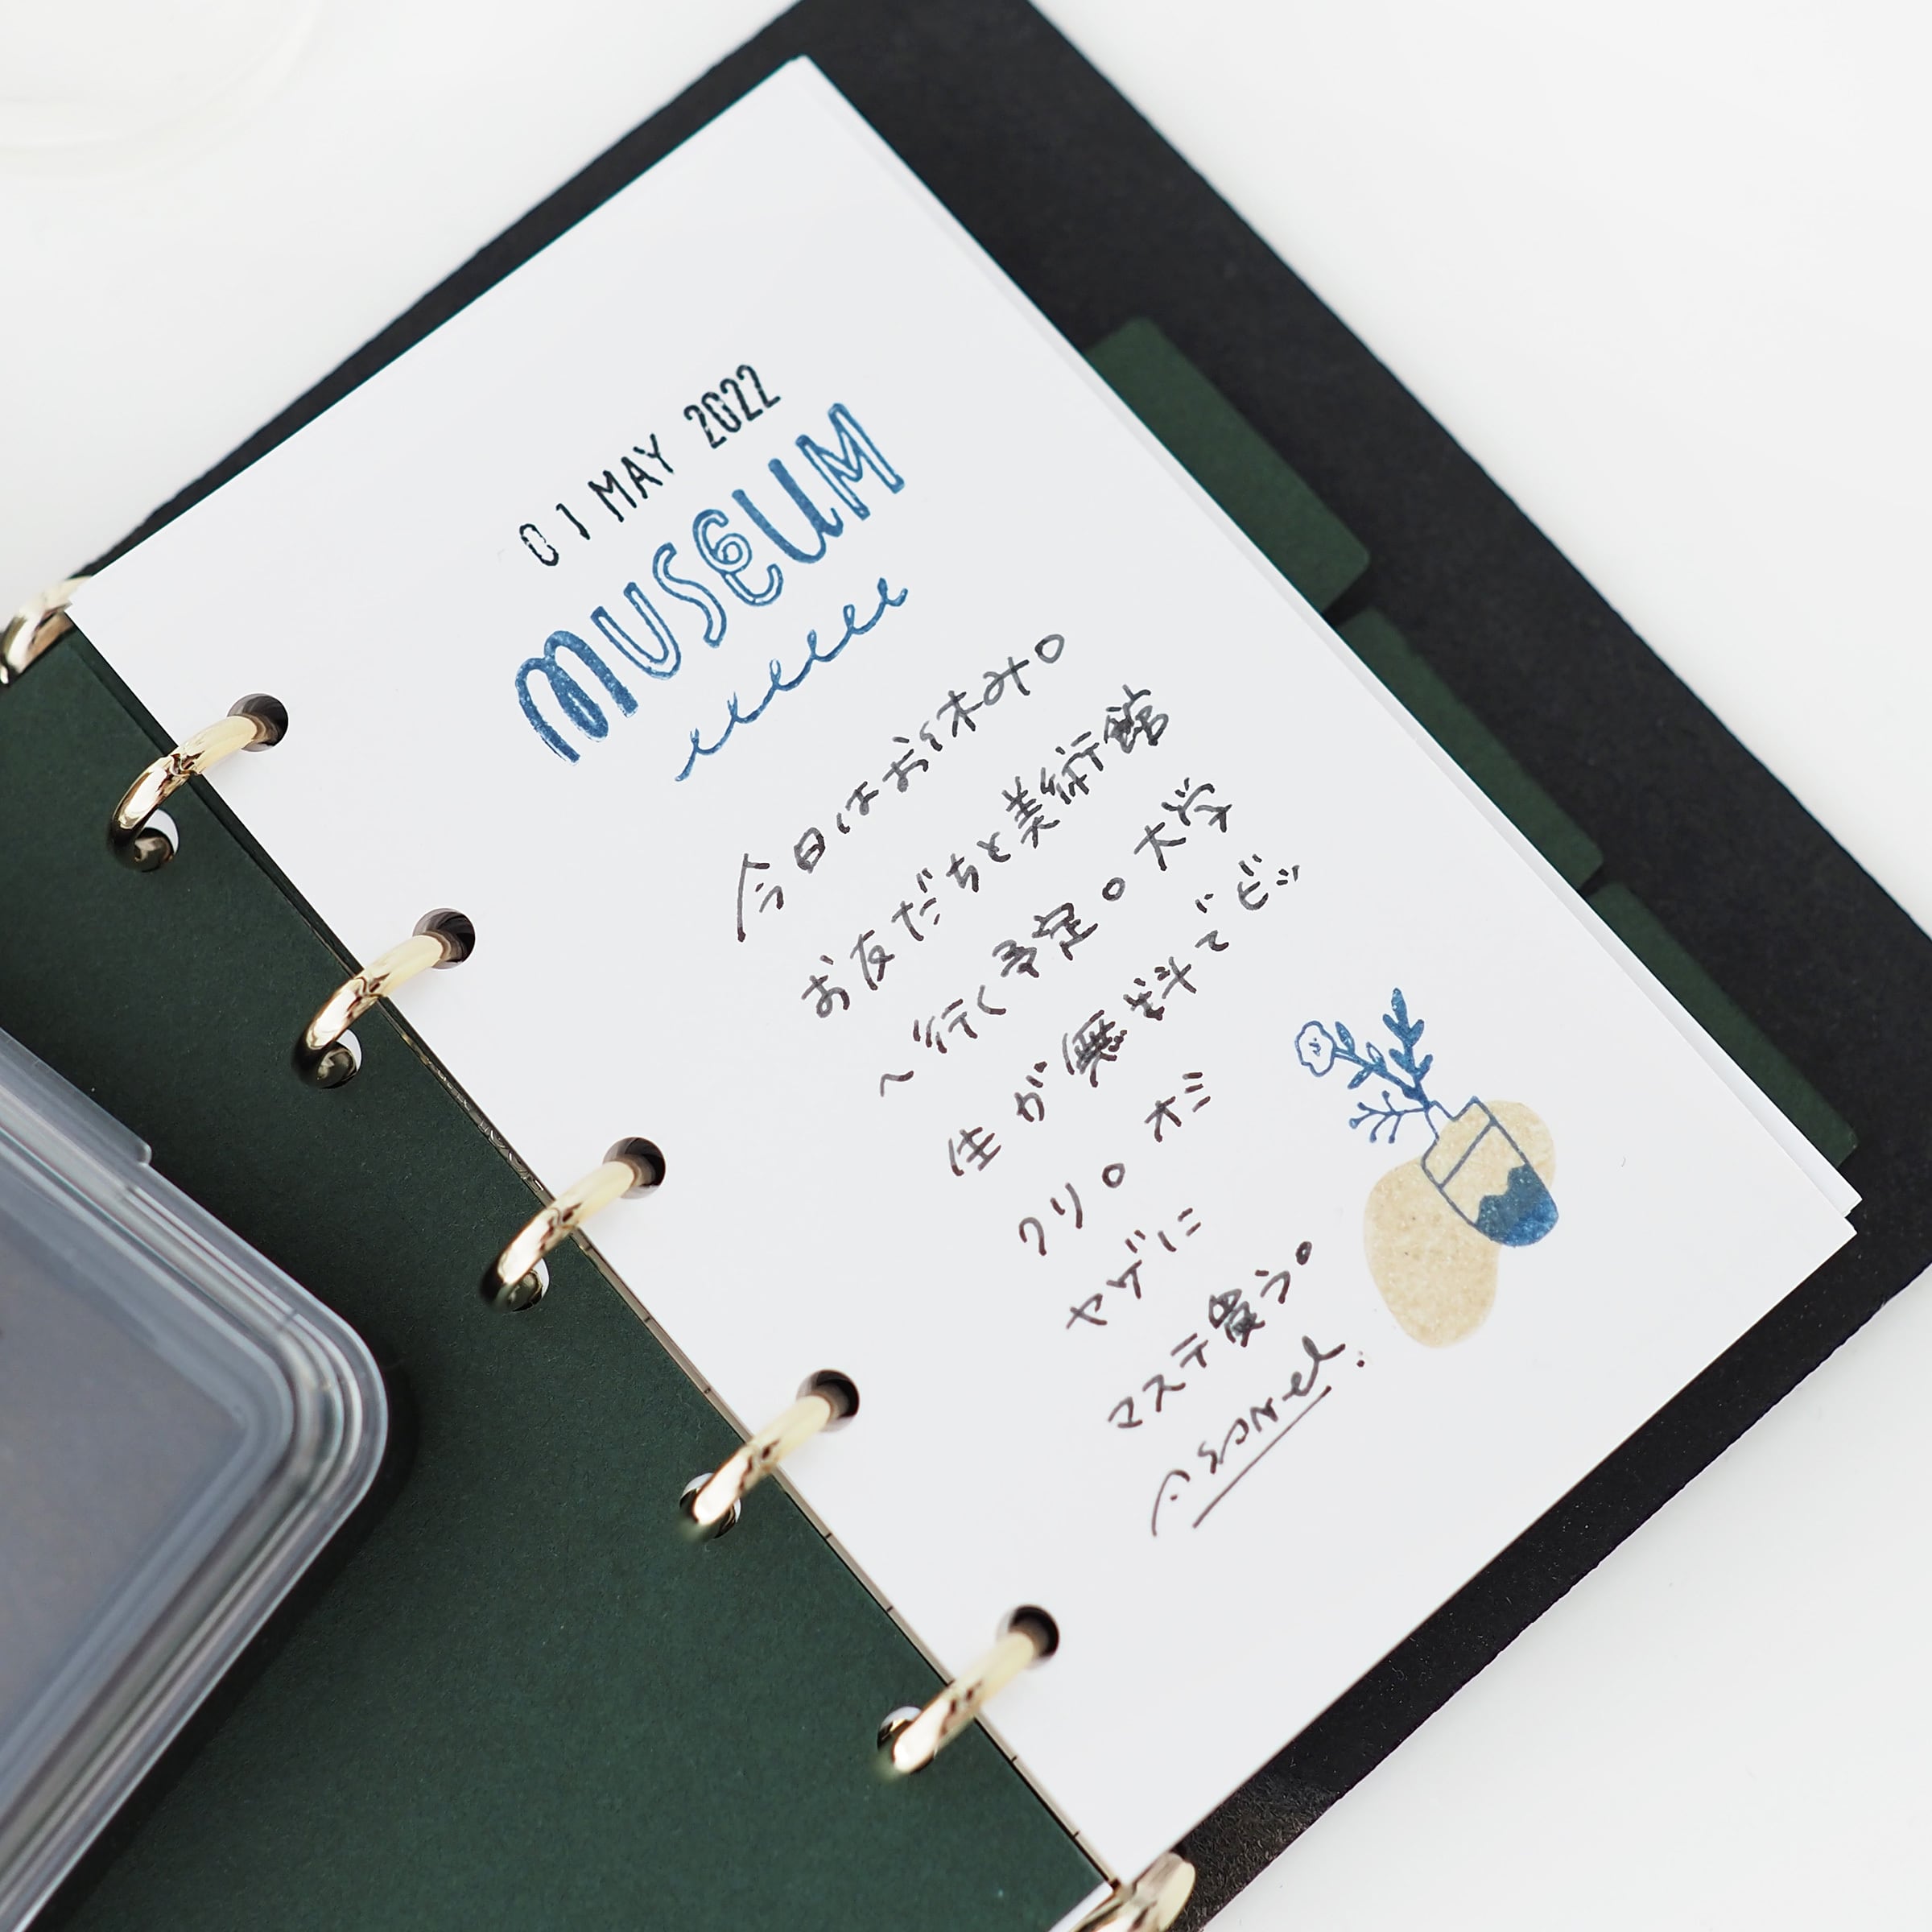 01 MAY 2022
MUSEUM
今日はお休み。
お友だちと美術館
へ行く予定。大学
生が無料でビッ
クリ。オミ
ヤゲに
マステ買う。